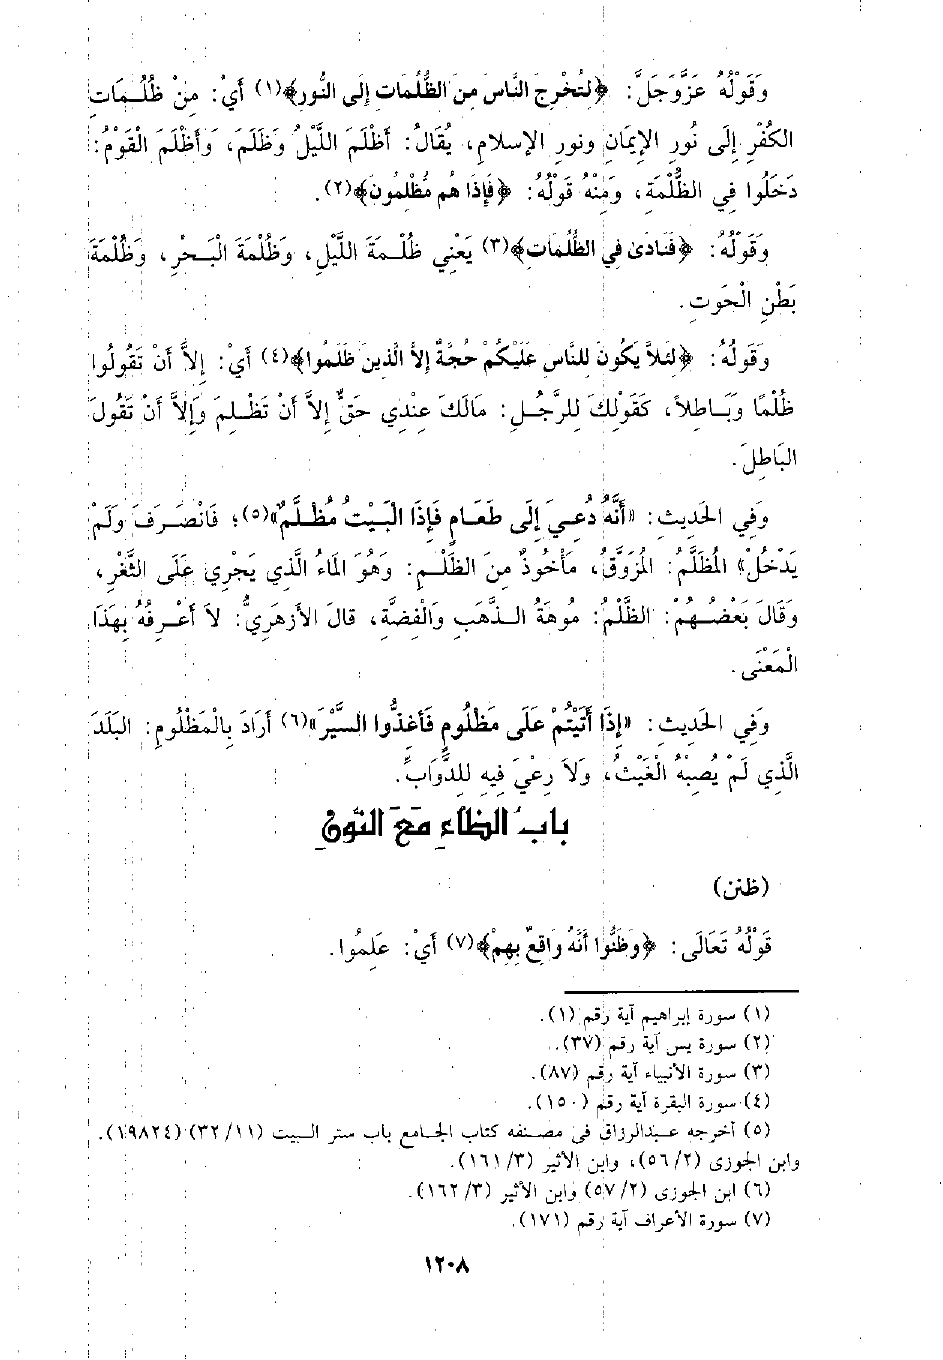 وَقَوْلُهُ عَزَّوَجَلَّ: ﴿لتُخْرِجَ النَّاسَ مِنَ الظُّلُمَاتِ إِلَى النُّورِ﴾(١) أَيْ: مِنْ ظُلُمَاتِ
الكُفْرِ إِلَى نُورِ الإِيمَانِ ونورِ الإسلامِ، يُقَالُ: أَظْلَمَ اللَّيْلُ وَظَلَمَ، وَأَظْلَمَ الْقَوْمُ:
دَخَلُوا فِي الظُّلْمَةِ، وَمِنْهُ قَوْلُهُ: ﴿فَإِذَا هُم مُظْلِمُونَ﴾(٢).
وَقَوْلُهُ: ﴿فَنَادَى فِي الظُّلُمَاتِ﴾(٣) يَعْنِي ظُلْمَةَ اللَّيْلِ، وَظُلْمَةَ الْبَحْرِ، وَظُلْمَةَ
بَطْنِ الْحَوتِ.
وَقَوْلُهُ: ﴿لِئَلاَّ يَكُونَ لِلنَّاسِ عَلَيْكُمْ حُجَّةٌ إِلاَّ الَّذِينَ ظَلَمُوا﴾(٤) أَيْ: إِلاَّ أَنْ تَقُولُوا
ظُلْمًا وَبَاطِلاً، كَقَوْلِكَ لِلرَّجُلِ: مَالَكَ عِنْدِي حَقٌّ إِلاَّ أَنْ تَظْلِمَ وَإِلاَّ أَنْ تَقُولَ
البَاطِلَ.
وَفِي الحَدِيثِ: «أَنَّهُ دُعِيَ إِلَى طَعَامٍ فَإِذَا الْبَيْتُ مُظَلَّمٌ»(٥)؛ فَانْصَرَفَ وَلَمْ
يَدْخُلْ» المُظَلَّمُ: المُزَوَّقُ، مَأْخُوذٌ مِنَ الظَّلْمِ: وَهُوَ المَاءُ الَّذِي يَجْرِي عَلَى الثَّغْرِ،
وَقَالَ بَعْضُهُمْ: الظَّلْمُ: مُوهَةُ الذَّهَبِ وَالْفِضَّةِ، قالَ الأزهَرِيُّ: لاَ أَعْرِفُهُ بِهَذَا
الْمَعْنَى.
وَفِي الحَدِيثِ: «إِذَا أَتَيْتُمْ عَلَى مَظْلُومٍ فَأَغِذُّوا السَّيْرَ»(٦) أَرَادَ بِالْمَظْلُومِ: البَلَدَ
الَّذِي لَمْ يُصِبْهُ الْغَيْثُ، وَلاَ رِعْيَ فِيهِ لِلدَّوَابِّ.
بابُ الظاءِ مَعَ النُونِ
(ظنن)
قَوْلُهُ تَعَالَى: ﴿وَظَنُّوا أَنَّهُ وَاقِعٌ بِهِمْ﴾(٧) أَيْ: عَلِمُوا.
(١) سورة إبراهيم آية رقم (١).
(٢) سورة يس آية رقم (٣٧).
(٣) سورة الأنبياء آية رقم (٨٧).
(٤) سورة البقرة آية رقم (١٥٠).
(٥) أخرجه عبدالرزاق فى مصنفه كتاب الجامع باب ستر البيت (١١/ ٣٢) (١٩٨٢٤).
وابن الجوزى (٢/ ٥٦)، وابن الأثير (٣/ ١٦١).
(٦) ابن الجوزى (٢/ ٥٧) وابن الأثير (٣/ ١٦٢).
(٧) سورة الأعراف آية رقم (١٧١).
١٢٠٨